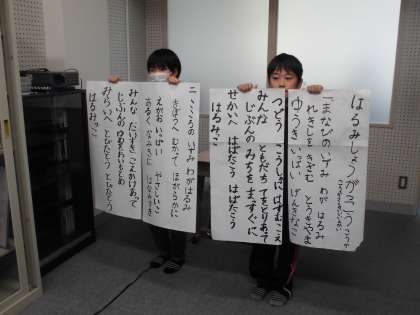 はるみしょうがっこう
一 まなびのいずみ わが はるみ
れきしを きざむ とうきやま
ゆうき いっぱい げんきなこ
つどう こうしゃに はずむ こえ
みんな ともだち てをとりあって
じぶんの みちを まっすぐに
せかいへ はばたこう はばたこう
はるみっこ
二 こころの いずみ わが はるみ
きぼうへ むかって ほがらかに
えがお いっぱい やさしいこ
あるく なみきに はながさき
みんな だいすき こえかけあって
じぶんの ゆめを おいもとめ
みらいへ とびたとう とびたとう
はるみっこ